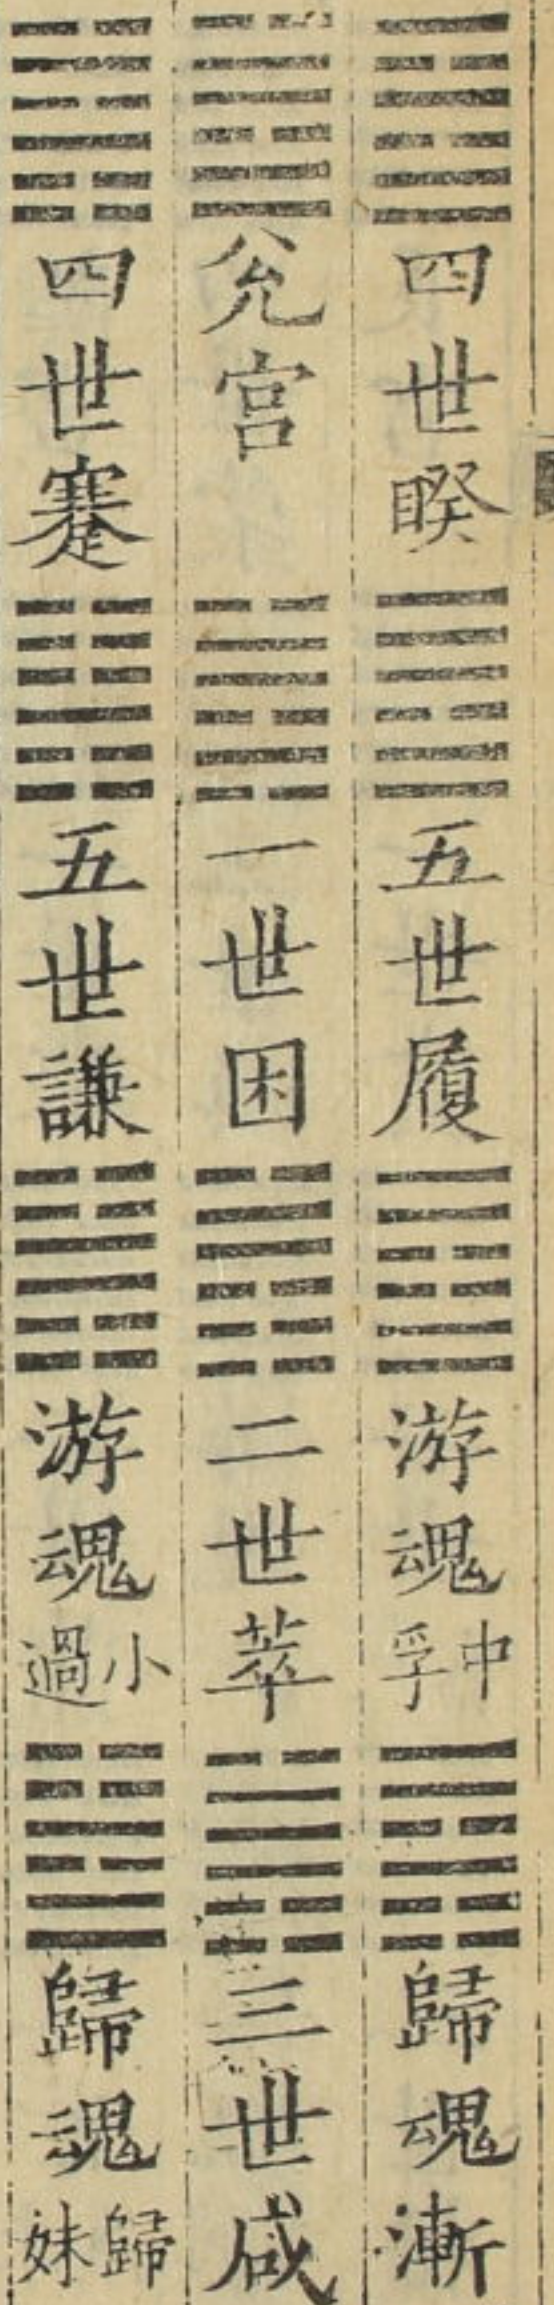 四世睽 五世履 游魂中孚 歸魂漸
兊宫 一世困 二世萃 三世咸
四世蹇 五世謙 游魂小過 歸魂歸妹